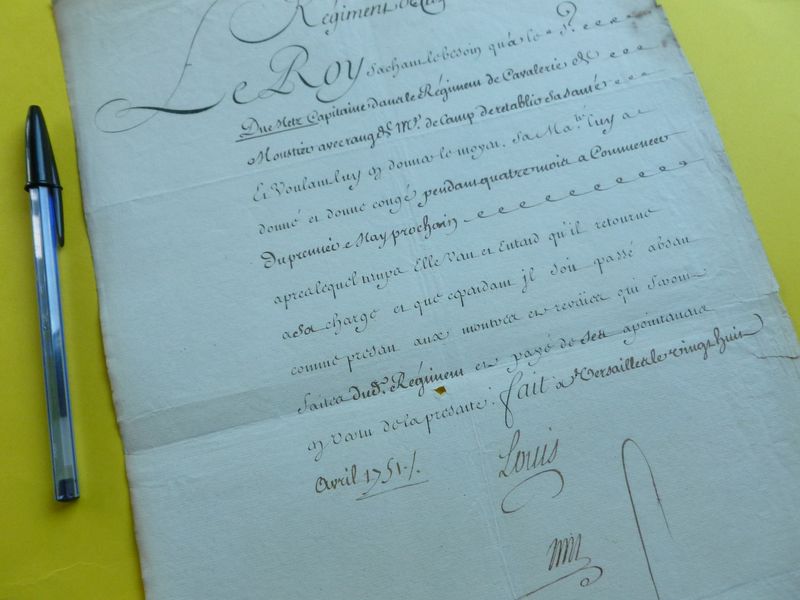 Régiment de Cav
Le Roy sachant le besoin qu'a le S.r
Duc Metz Capitaine dans le Régiment de Cavalerie de
Moustier avec rang de M.e de Camp de retablir sa santé
Et Voulant luy en donner le moyen. Sa Ma.té luy a
donné et donne congé pendant quatre mois a Commencer
Du premier May prochain
apres lequel temps Elle Veut et Entend qu'il retourne
a sa charge et que cependant jl soit passé absent
comme present aux montres et reveües qui seront
faites dud. Régiment et payé de ses apointemens
en Vertu de la presente. fait a Versailles le vingt huit
Avril 1751./.
Louis